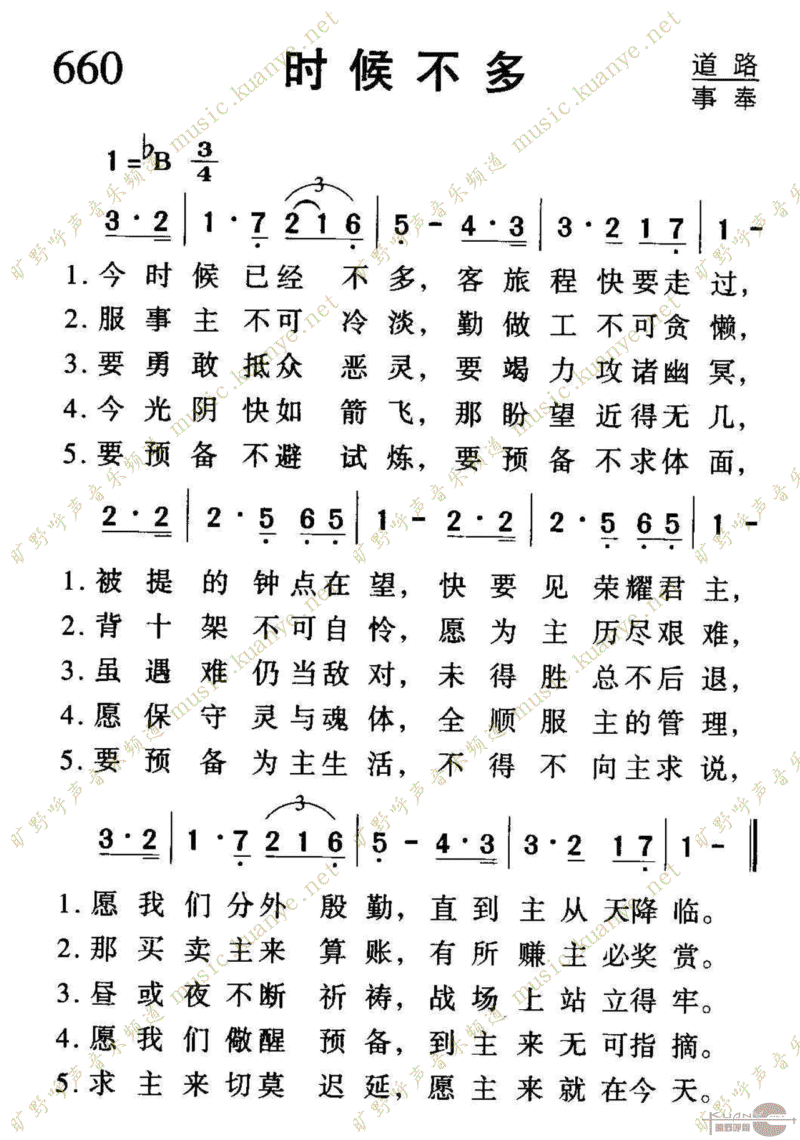 660 时候不多 道路
事奉
1=♭B 3/4
3·2 | 1·7 216 | 5 - 4·3 | 3·2 17 | 1 -
1.今时候已经不多，客旅程快要走过，
2.服事主不可冷淡，勤做工不可贪懒，
3.要勇敢抵众恶灵，要竭力攻诸幽冥，
4.今光阴快如箭飞，那盼望近得无几，
5.要预备不避试炼，要预备不求体面，
2·2 | 2·5 65 | 1 - 2·2 | 2·5 65 | 1 -
1.被提的钟点在望，快要见荣耀君主，
2.背十架不可自怜，愿为主历尽艰难，
3.虽遇难仍当敌对，未得胜总不后退，
4.愿保守灵与魂体，全顺服主的管理，
5.要预备为主生活，不得不向主求说，
3·2 | 1·7 216 | 5 - 4·3 | 3·2 17 | 1 - ‖
1.愿我们分外殷勤，直到主从天降临。
2.那买卖主来算账，有所赚主必奖赏。
3.昼或夜不断祈祷，战场上站立得牢。
4.愿我们儆醒预备，到主来无可指摘。
5.求主来切莫迟延，愿主来就在今天。
旷野呼声音乐频道 music.kuanye.net